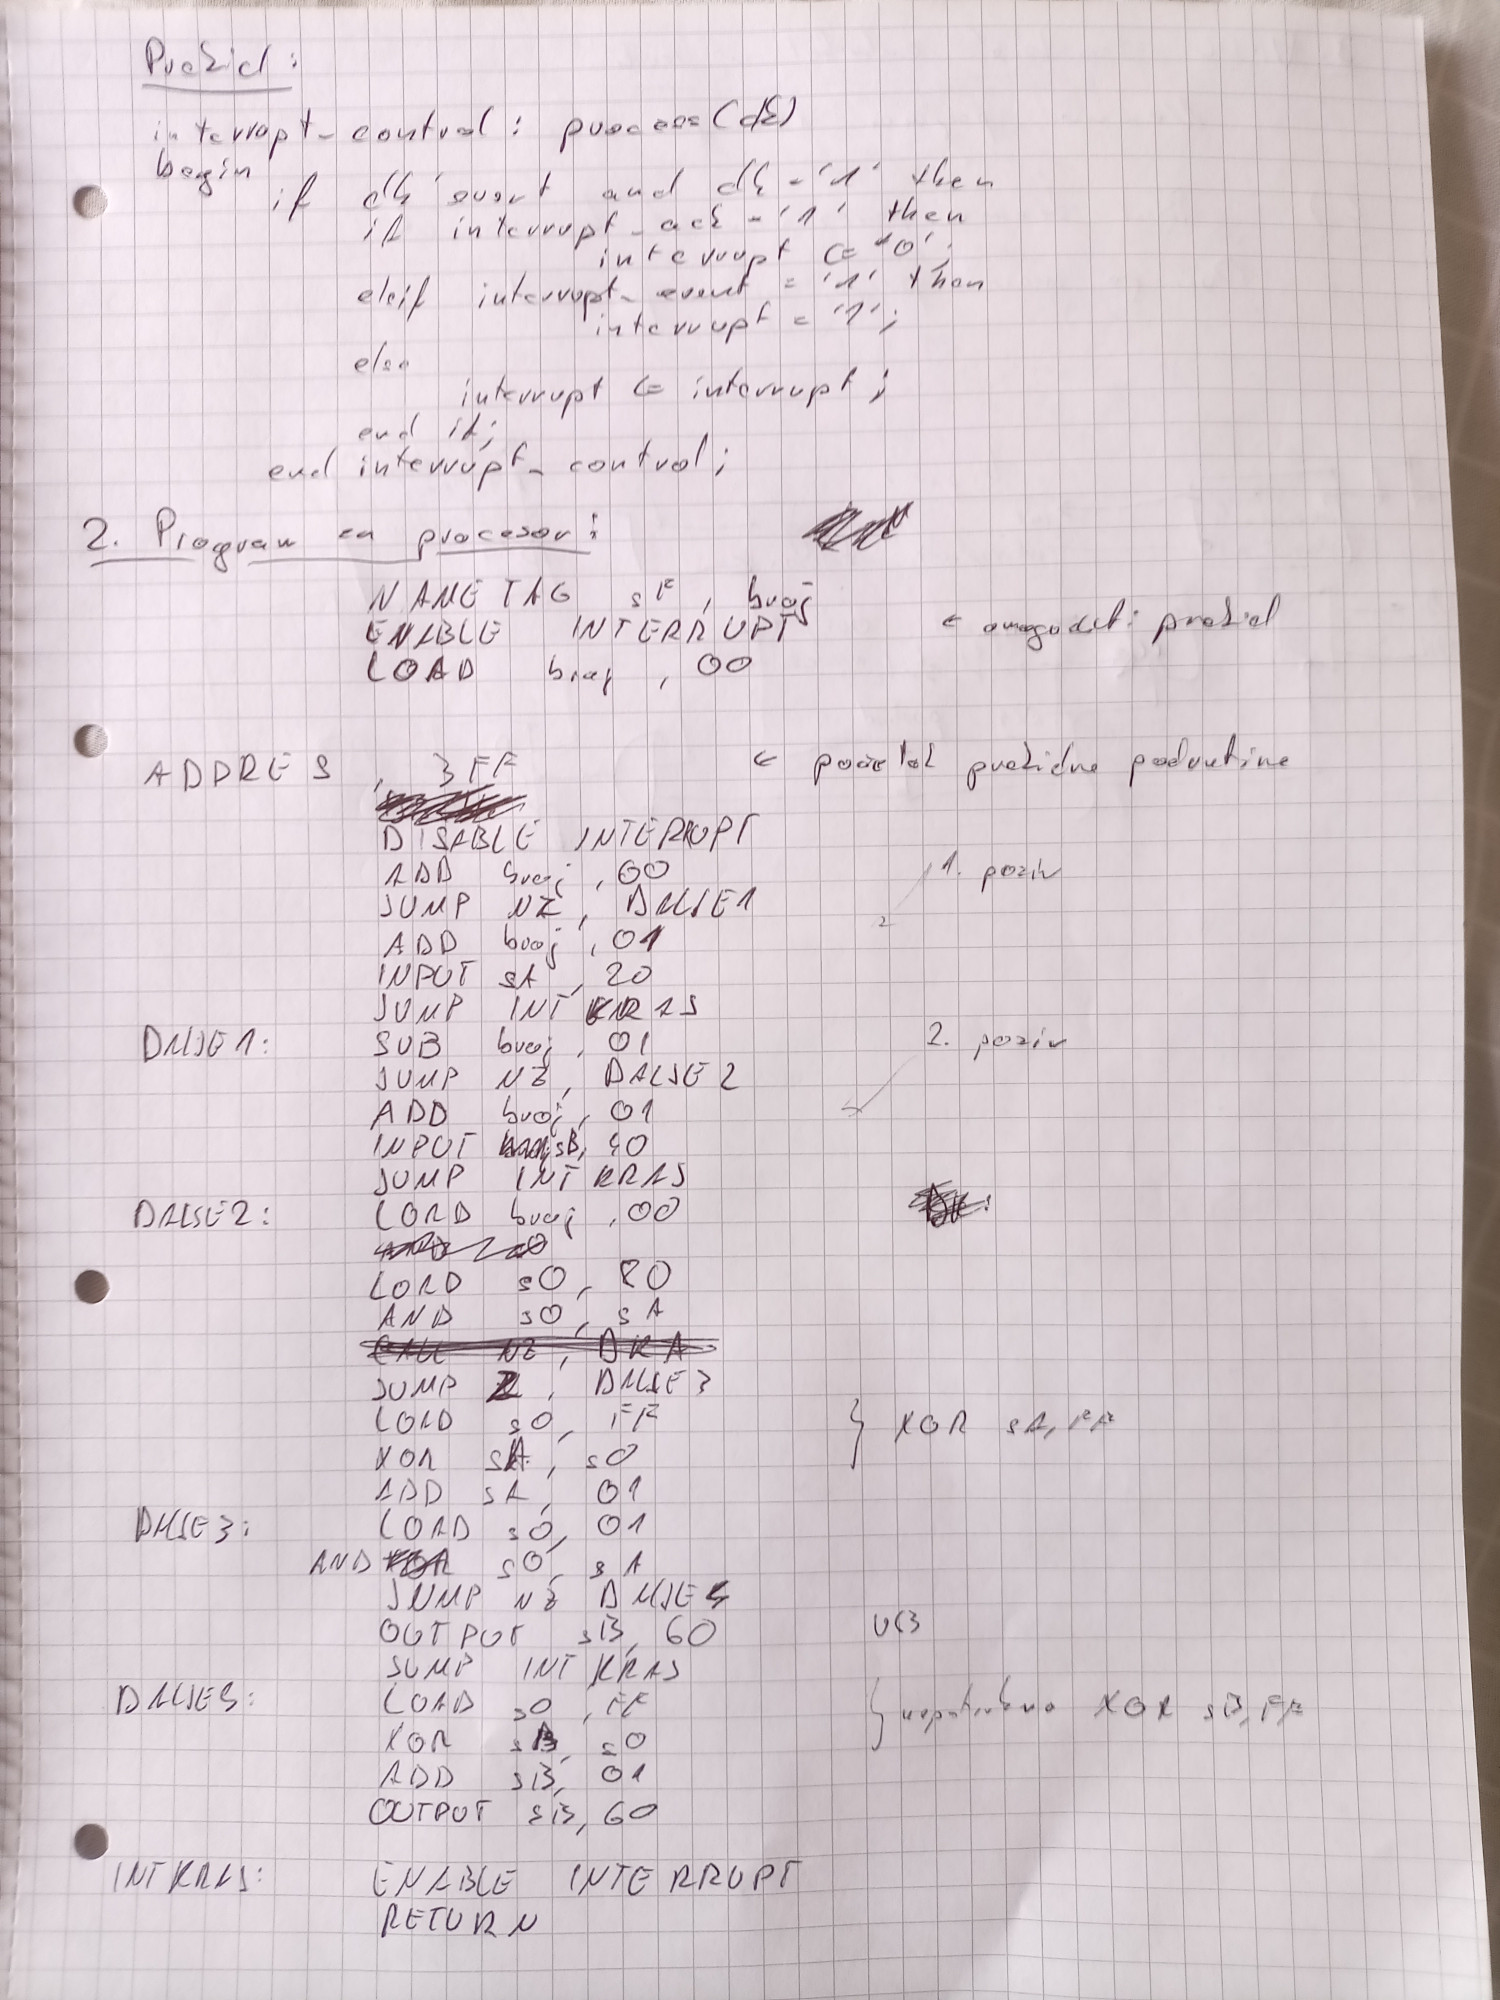 Prekid:
interrupt_control: process(clk)
begin
if clk'event and clk='1' then
if interrupt_ack='1' then
interrupt <= '0';
elsif interrupt_event = '1' then
interrupt = '1';
else
interrupt <= interrupt;
end if;
end interrupt_control;
2. Program za procesor:
NAMETAG sF, broj
ENABLE INTERRUPT ← omogućiti prekid
LOAD broj, 00
ADDRES, 3FF ← početak prekidne podrutine
DISABLE INTERRUPT
ADD broj, 00 1. poziv
JUMP NZ, DALJE1
ADD broj, 01
INPUT sA, 20
JUMP INTKRAJ
DALJE1: SUB broj, 01 2. poziv
JUMP NZ, DALJE2
ADD broj, 01
INPUT sB, 40
JUMP INTKRAJ
DALJE2: LOAD broj, 00
LOAD s0, 80
AND s0, sA
JUMP Z, DALJE3
LOAD s0, FF } XOR sA, FF
XOR sA, s0
ADD sA, 01
DALJE3: LOAD s0, 01
AND s0, sA
JUMP NZ DALJE4
OUTPUT sB, 60
JUMP INTKRAJ
DALJE4: LOAD s0, FF } XOR sB, FF
XOR sB, s0
ADD sB, 01
OUTPUT sB, 60
INTKRAJ: ENABLE INTERRUPT
RETURN